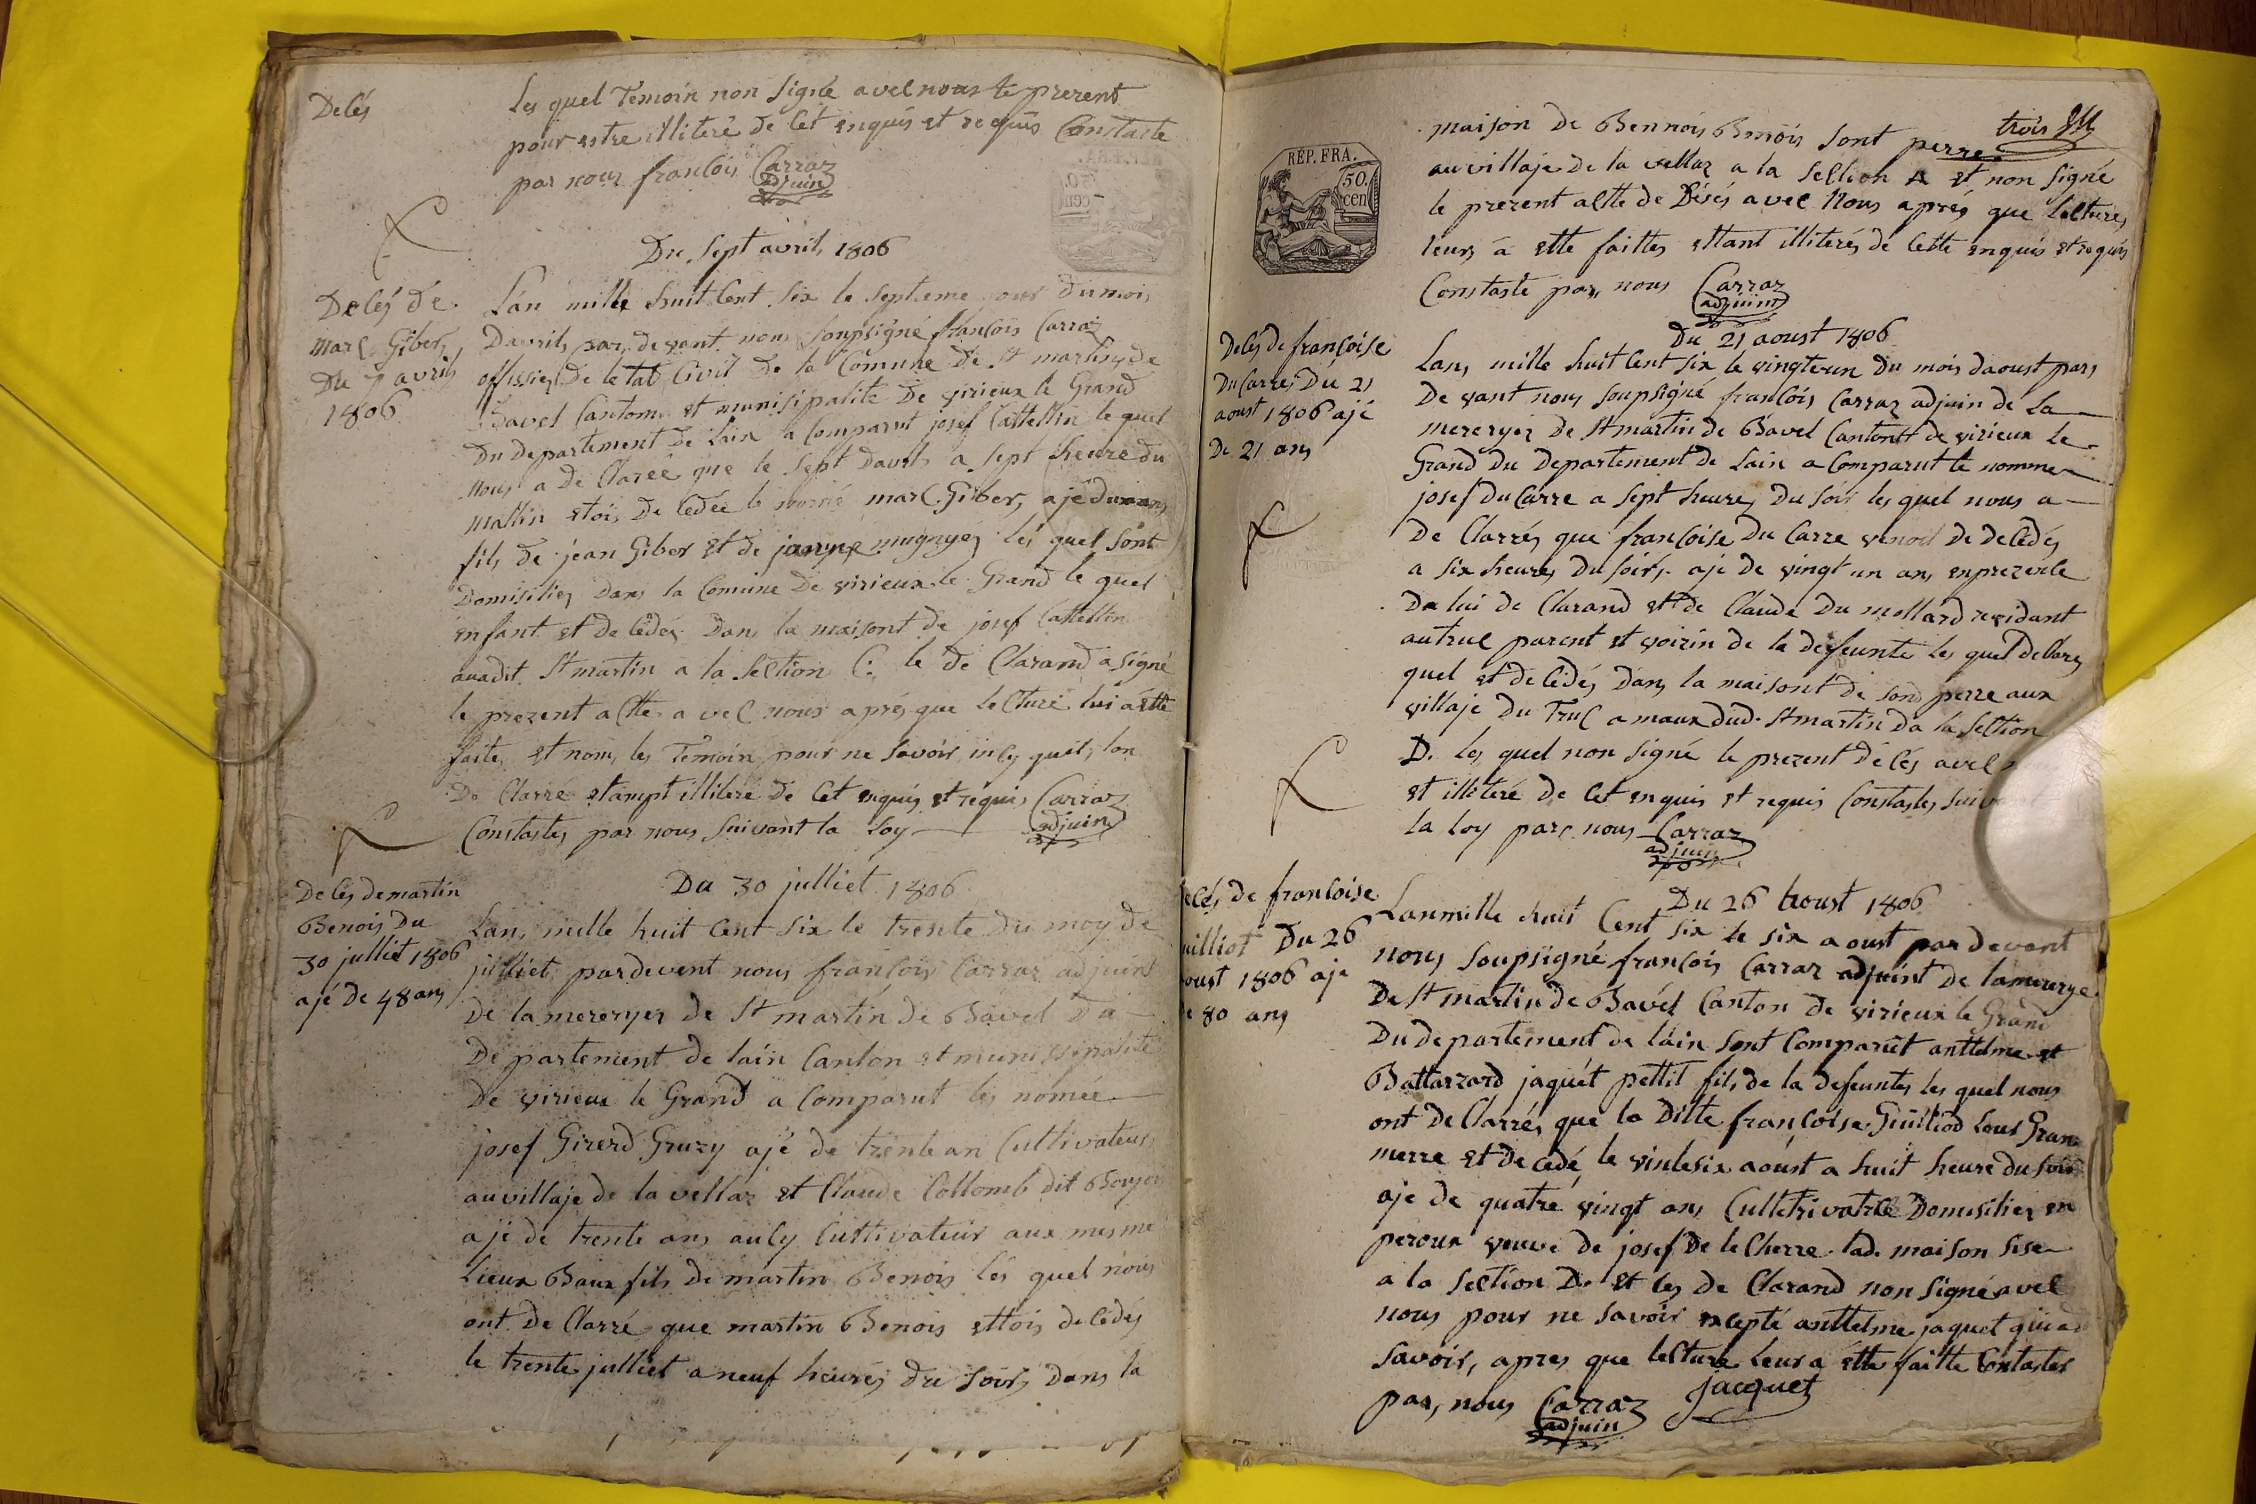 Decés
Les quel Temoin non Signé avel nous le prezent
pour estre illiteré de Cet enquis et requis Constaste
par nous francois Carraz
adjuin
Du Sept avril 1806
Decés de
Marc Giber
Du 7 avril
1806
Lan mille huit Cent Six le Septieme jour du mois
Davril par devant nous Soupsigné francois Carraz
offissier De letat Civil De la Comune De St martin de
Bavel Cantom et munisipalite De virieux le Grand
Du Departement De Lain a Comparut josef Cattellin le quel
Nous a De Claree que le Sept Davril a Sept heure du
mattin etois De Cedee le nomé marc Giber ajé
fils de jean Giber et de jannne mugnyer les quel Sont
Domisilier Dans la Comune De virieux le Grand le quel
enfant et De Cedes Dans la maisont de josef Cattellin
auadit St martin a la Section C. le De Clarand a Signé
le prezent actte avec nous aprés que lecture lui a ette
faite et nom les Temoin pour ne Savoir
De Clarre etampt illiteré de Cet enquis et requis Carraz
Constastes par nous Suivant la Loy
adjuin
Du 30 julliet 1806
Deces de martin
Benois Du
30 julliet 1806
ajé de 48 ans
Lan mille huit Cent Six le trente Du moy de
julliet pardevent nous francois Carraz adjuint
De la mereryer de St martin de Bavel Du
De partement de lain Canton et munissipalité
De virieux le Grand a Comparut les nomée
josef Girerd Gruzy ajé de trente an Cultivateur
au villaje de la vellaz et Claude Collomb dit
ajé de trente ans aucy Cultivateur aux mesme
Lieux Baux fils De martin Benois les quel nous
ont De Clarré que martin Benois ettois de Cédés
le trente julliet a neuf heures du Soir Dans la
trois
RÉP. FRA.
50.
cen
maison De Bennois Benois Sont perre
au villaje De la vellaz a la Section A et non Signé
le prezent actte de Désés avec Nous aprés que lecture
leur a ette faittes ettant illiterés de Cette enquis et requis
Constasté par nous Carraz
adjuint
Du 21 aoust 1806
Decés de françoise
Du Carre Du 21
aoust 1806 ajé
De 21 ans
Lan mille huit Cent Six le vingteun Du mois daoust par
De vant nous Soupsigné francois Carraz adjuin de La
mereryer De St martin de Bavel Cantont de virieux le
Grand Du Departement De Lain a Comparut le nomme
josef Du Carre a Sept heure Du Soir les quel nous a
De Clarrés que françoise Du Carre venoit De deCédés
a Six heures Du Soir aje De vingt un ans enprezence
Da lui de Clarand et De Claude Du mollard rezidant
autruc parent et voizin de la defeunte les quel Declare
quel et de Cédés Dans la maisont de Sond perre aux
villaje Du Truc a maux dud. St martin Da la Section
D. les quel non Signé le prezent Décés avel
et illiteré de Cet enquis et requis Constastes Suiv
la loy parc nous Carraz
adjuin
Du 26 houst 1806
eces de francoise
uilliot Du 26
oust 1806 aje
e 80 ans
Lanmille huit Cent Six le Six aoust par devant
nous Soupsigné francois Carraz adjuint De lamererye
De St martin de Bavél Canton De virieux le Grand
Du departement de lain Sont Comparut anttelme et
Battarzard jaquét pettit fils de la defeuntes les quel nous
ont De Clarrés que la Ditte françoise Guilliod Leus Gran
merre et De Cedé le vintesix aoust a huit heure du Soir
aje De quatre vingt ans Culltrivatrice Domisilier en
peroux veuve de josef De le Cherre lad. maison Sise
a la Section D. et les De Clarand non Signé avel
nous pour ne Savoir excepté anttelme jaquet
Savoir, apres que lecture Leur a étte faitte Constastes
par nous Carraz
adjuin
Jacquet